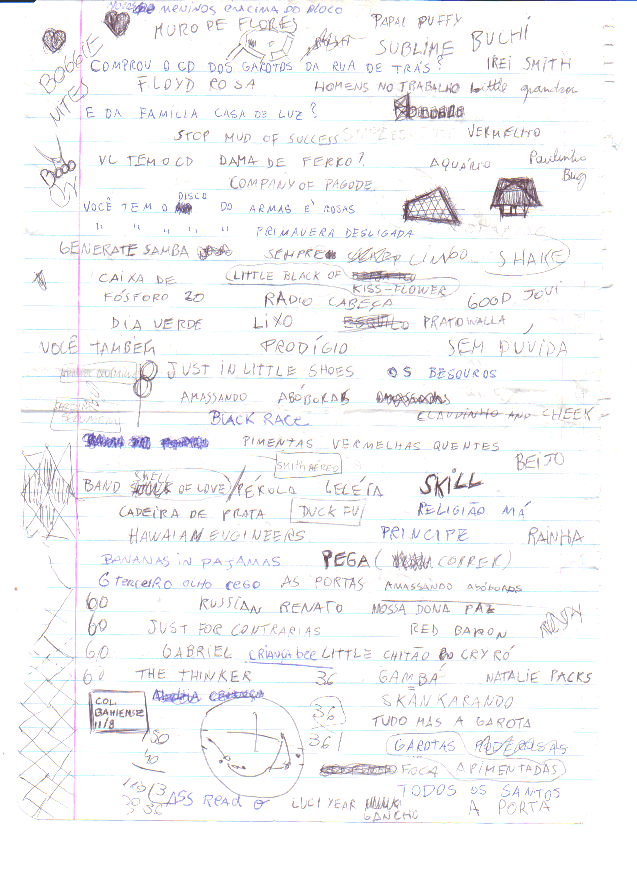 MENINOS ENCIMA DO BLOCO
MURO DE FLORES
PAPAI PUFFY
SUBLIME BUCHÍ
COMPROU O CD DOS GAROTOS DA RUA DE TRÁS?
IREI SMITH
FLOYD ROSA
HOMENS NO TRABALHO
Little
E DA FAMÍLIA CASA DE LUZ?
STOP MUD OF SUCCESS
VERMELHO
VC TEM O CD DAMA DE FERRO?
AQUÁRIO
Paulinho
Bug
COMPANY OF PAGODE
VOCÊ TEM O DISCO DO ARMAS E ROSAS
" " " " " PRIMAVERA DESLIGADA
GENERATE SAMBA
SEMPRE LINDO
SHAKE
CAIXA DE
FÓSFORO 20
LITTLE BLACK OF
KISS-FLOWER
RÁDIO CABEÇA
GOOD JOVI
DIA VERDE
LIXO
PRATOWALLA
VOCÊ TAMBÉM
PRODÍGIO
SEM DUVIDA
JUST IN LITTLE SHOES
OS BESOUROS
AMASSANDO ABÓBORAS
BLACK RACE
CLAUDINHO AND CHEEK
PIMENTAS VERMELHAS QUENTES
SMITHÉREO
BEIJO
BAND SHELL OF LOVE
PÉROLA
LELÉIA
SKILL
CADEIRA DE PRATA
DUCK FU
RELIGIÃO MÁ
HAWAIAN ENGINEERS
PRINCIPE
RAINHA
BANANAS IN PAJAMAS
PEGA (CORRER)
6 TERCEIRO OLHO CEGO
AS PORTAS
AMASSANDO ABÓBORAS
60
RUSSIAN RENATO
MOSSA DONA PAZ
60
JUST FOR CONTRARIAS
RED BARON
60
GABRIEL CRIANÇA DCE
LITTLE CHITÃO CRY RÓ
60
THE THINKER
36
GAMBÁ
NATALIE PACKS
COL.
BAHIENSE
11/8
36
SKANKARANDO
TUDO MAS A GAROTA
361
GAROTAS PODEROSAS
FOCA
APIMENTADAS
TODOS OS SANTOS
ASS READ
LUCI YEAR
GANCHO
A PORTA